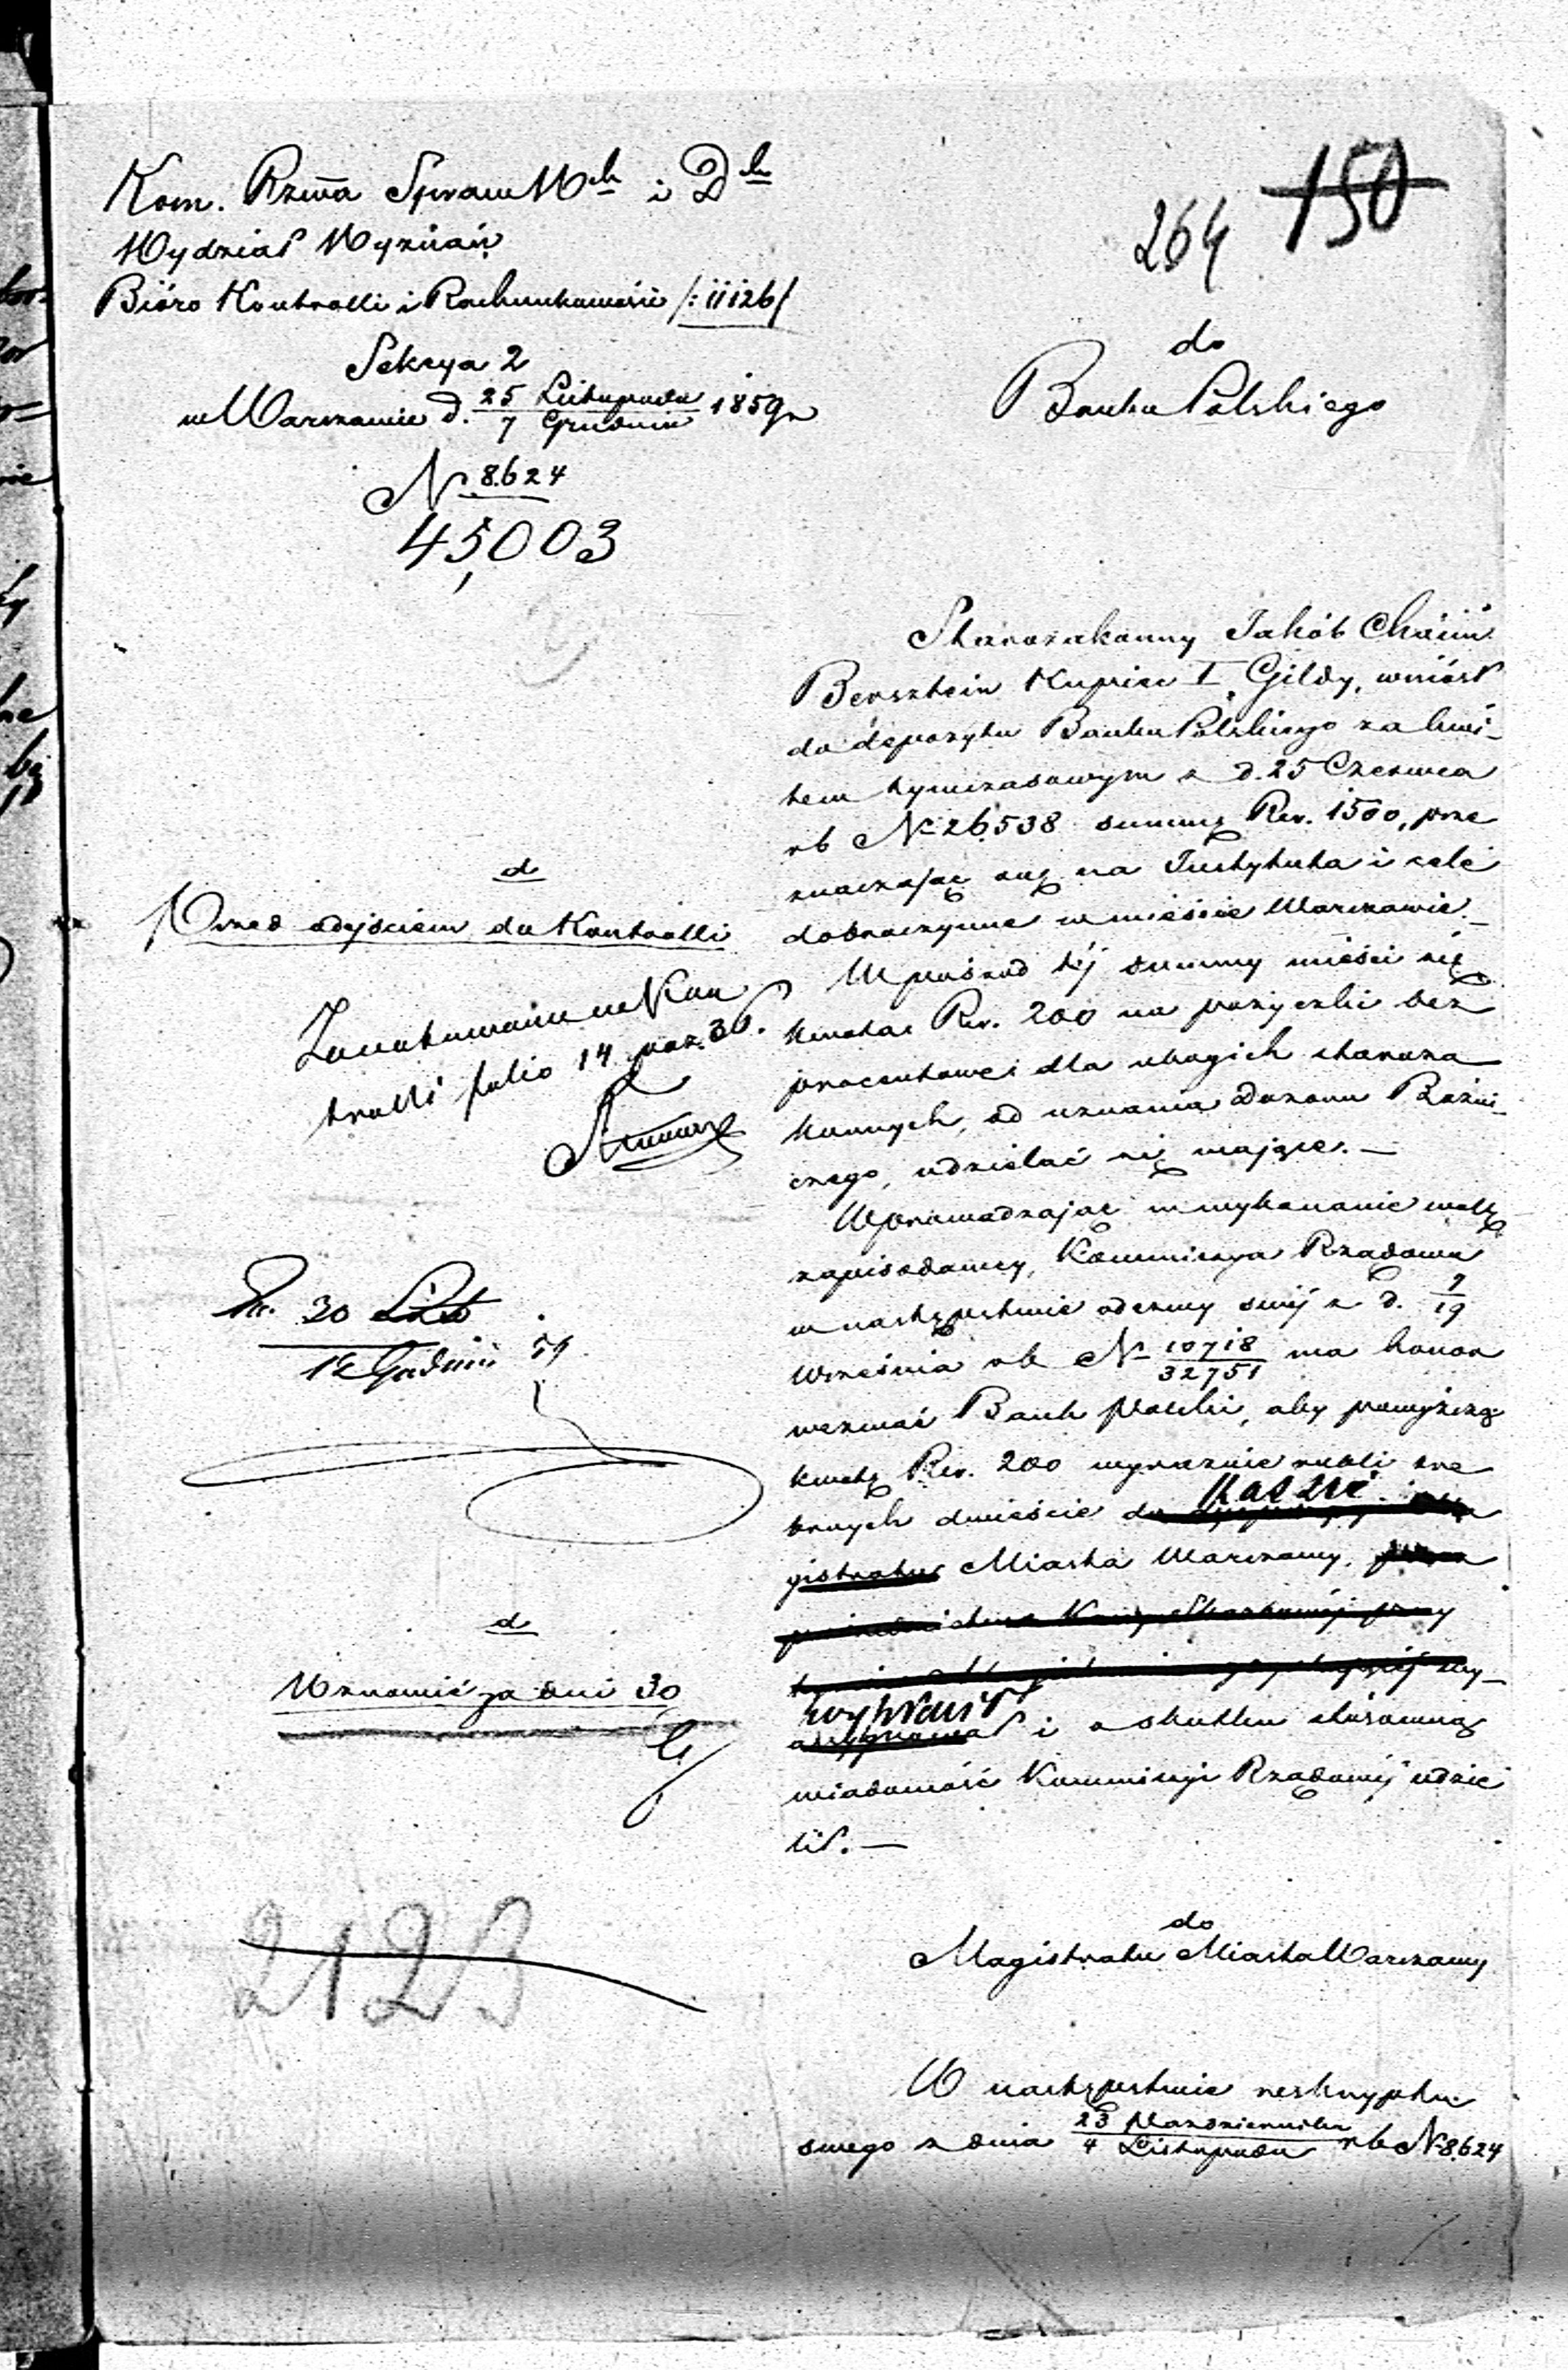 Kom. Rzwa Spraw Wch i Dch
Wydział Wyznań
Bióro Kontrolli i Rachunkowości /:11126/
Sekcya 2
w Warszawie d. 25 Listopada / 7 Grudnia 1859 r
N 8624
45,003
264 150
do
Banku Polskiego
Starozakonny Jakób Chaim
Bersztein Kupiec I Gildy, wniósł
do depozytu Banku Polskiego za kwi-
tem tymczasowym z d. 25 Czerwca
rb N 26538 summę Rsr. 1500, prze
znaczając ową na Instytuta i cele
dobroczynne w mieście Warszawie.-
W pośród tej summy mieści się
kwota Rsr. 200 na pożyczki bez
procentowe dla ubogich staroza
konnych, od uznania Dozoru Bożni-
czego, udzielać się mające.-
Wprowadzając w wykonanie wolę
zapisodawcy, Kommissya Rządowa
w następstwie odezwy swej z d. 7/19
Września rb N 10718/32751 ma honor
wezwać Bank Polski, aby powyższą
kwotę Rsr. 200 wyraźnie rubli sre
brnych dwieście do Kassie
gistratu Miasta Warszawy,
wypłacił
assygnował i o skutku stósowną
wiadomość Kommissyi Rządowej udzie
lił.-
d
Przed odejściem do Kontrolli
Zanotowano w Kon
trolli folio 14 poz. 36.
30 List
12 Grudnia 59
d
Wznowić za dni 30
2123
do
Magistratu Miasta Warszawy
W następstwie reskryptu
swego z dnia 23 Października / 4 Listopada rb N 8624